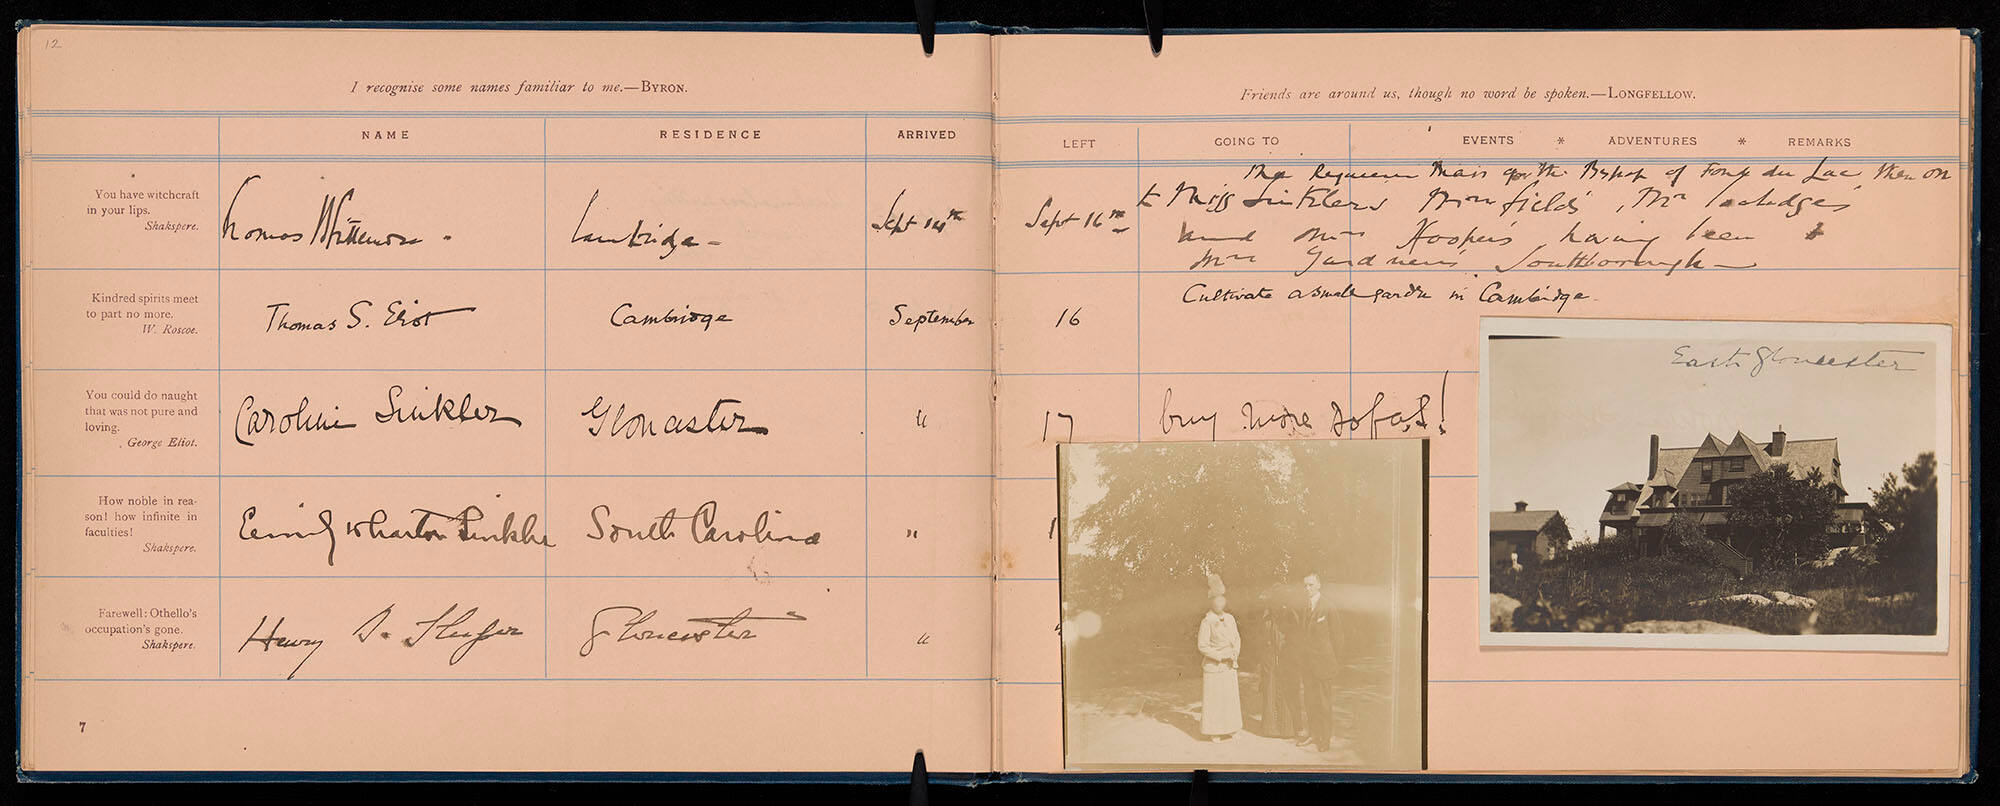 12
I recognise some names familiar to me.—BYRON.
NAME RESIDENCE ARRIVED
You have witchcraft
in your lips.
Shakspere.
Thomas Whittemore Cambridge— Sept 14th
Kindred spirits meet
to part no more.
W. Roscoe.
Thomas S. Eliot Cambridge September
You could do naught
that was not pure and
loving.
George Eliot.
Caroline Sinkler Gloucester "
How noble in rea-
son! how infinite in
faculties!
Shakspere.
Emily Wharton Sinkler South Carolina "
Farewell: Othello's
occupation's gone.
Shakspere.
Henry D. Sleeper Gloucester "
7
Friends are around us, though no word be spoken.—LONGFELLOW.
LEFT GOING TO EVENTS * ADVENTURES * REMARKS
The Requiem Mass for the Bishop of Fond du Lac then on
Sept 16th to Miss Sinkler's, Mr
and Mrs Hooper's, having been
Mrs Gardner's Southborough—
16 Cultivate a small garden in Cambridge.
17 buy more sofas!
1
East Gloucester